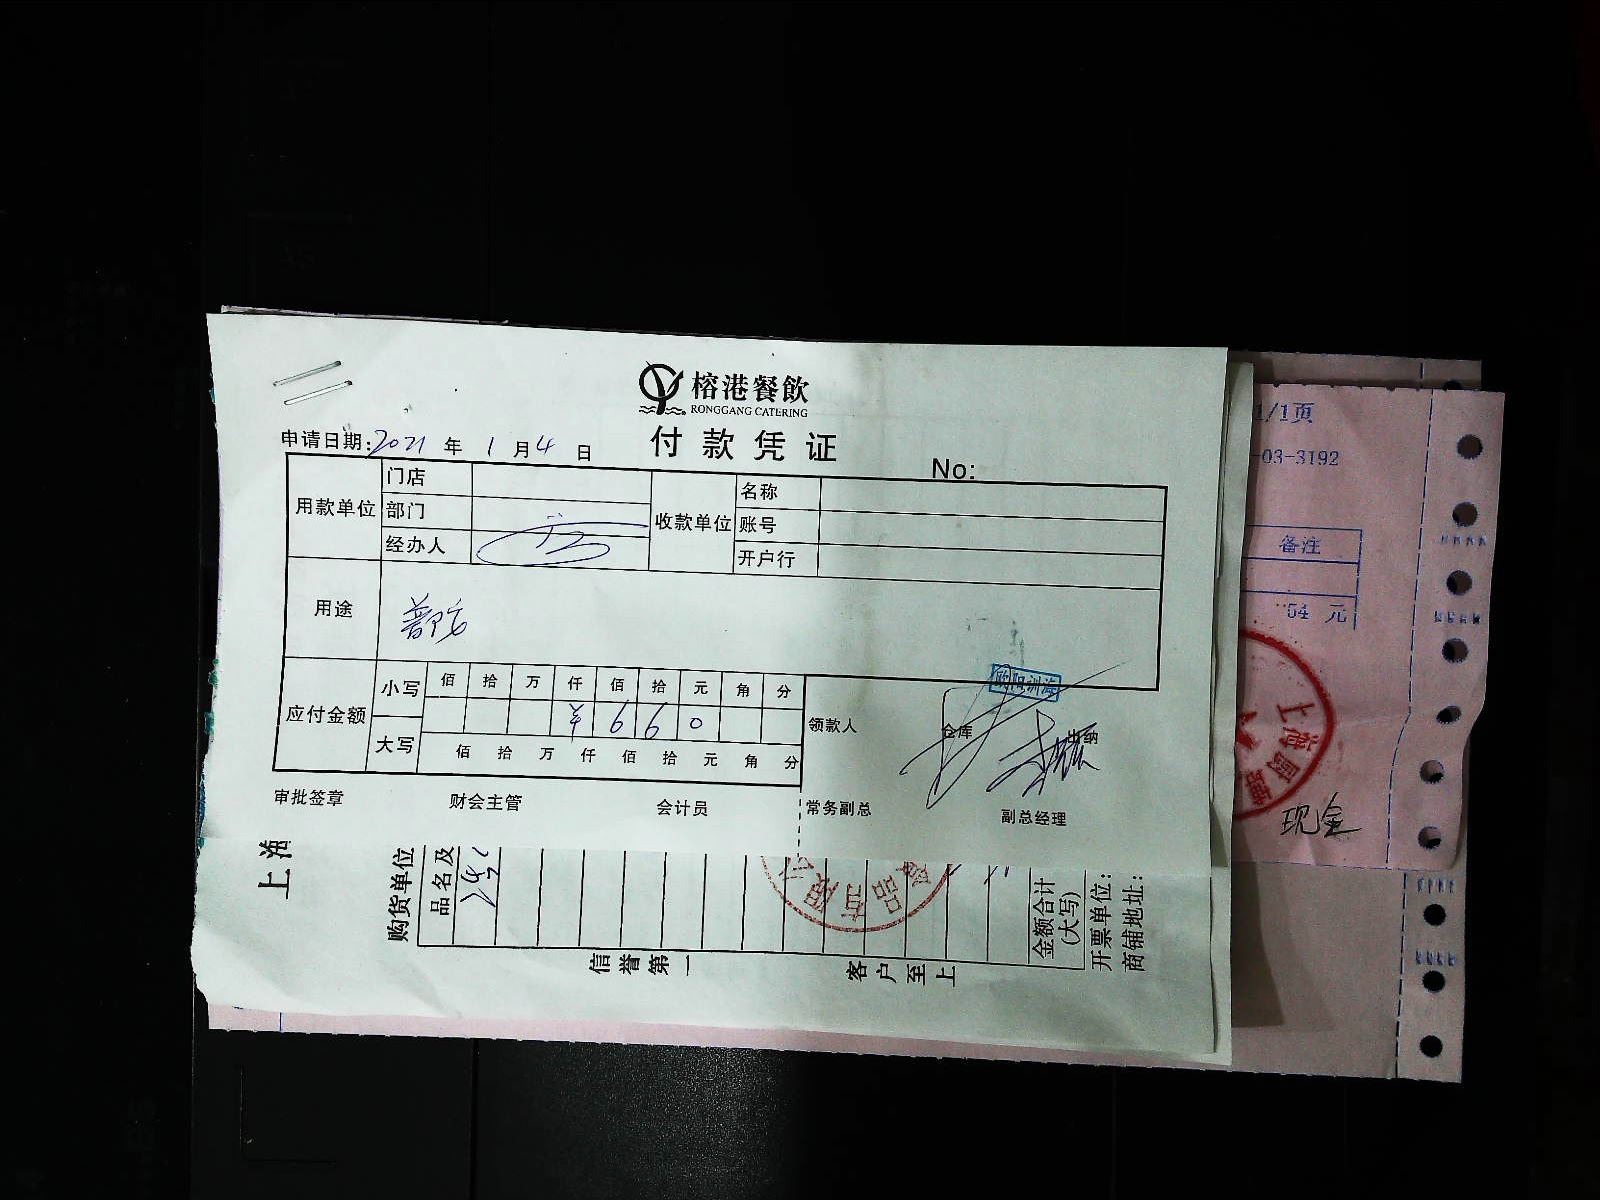 榕港餐飲
RONGGANG CATERING
付款凭证
申请日期:2021年1月4日
No:
用款单位 门店 收款单位 名称
部门 账号
经办人 开户行
用途
应付金额 小写 佰 拾 万 仟 佰 拾 元 角 分
¥ 6 6 0
大写 佰 拾 万 仟 佰 拾 元 角 分
领款人 仓库 出纳
欧阳洲海
审批签章 财会主管 会计员 常务副总 副总经理
上海
购货单位
品名及
金额合计
(大写)
开票单位:
商铺地址:
信誉第一 客户至上
1/1页
-03-3192
备注
54 元
上海
现金